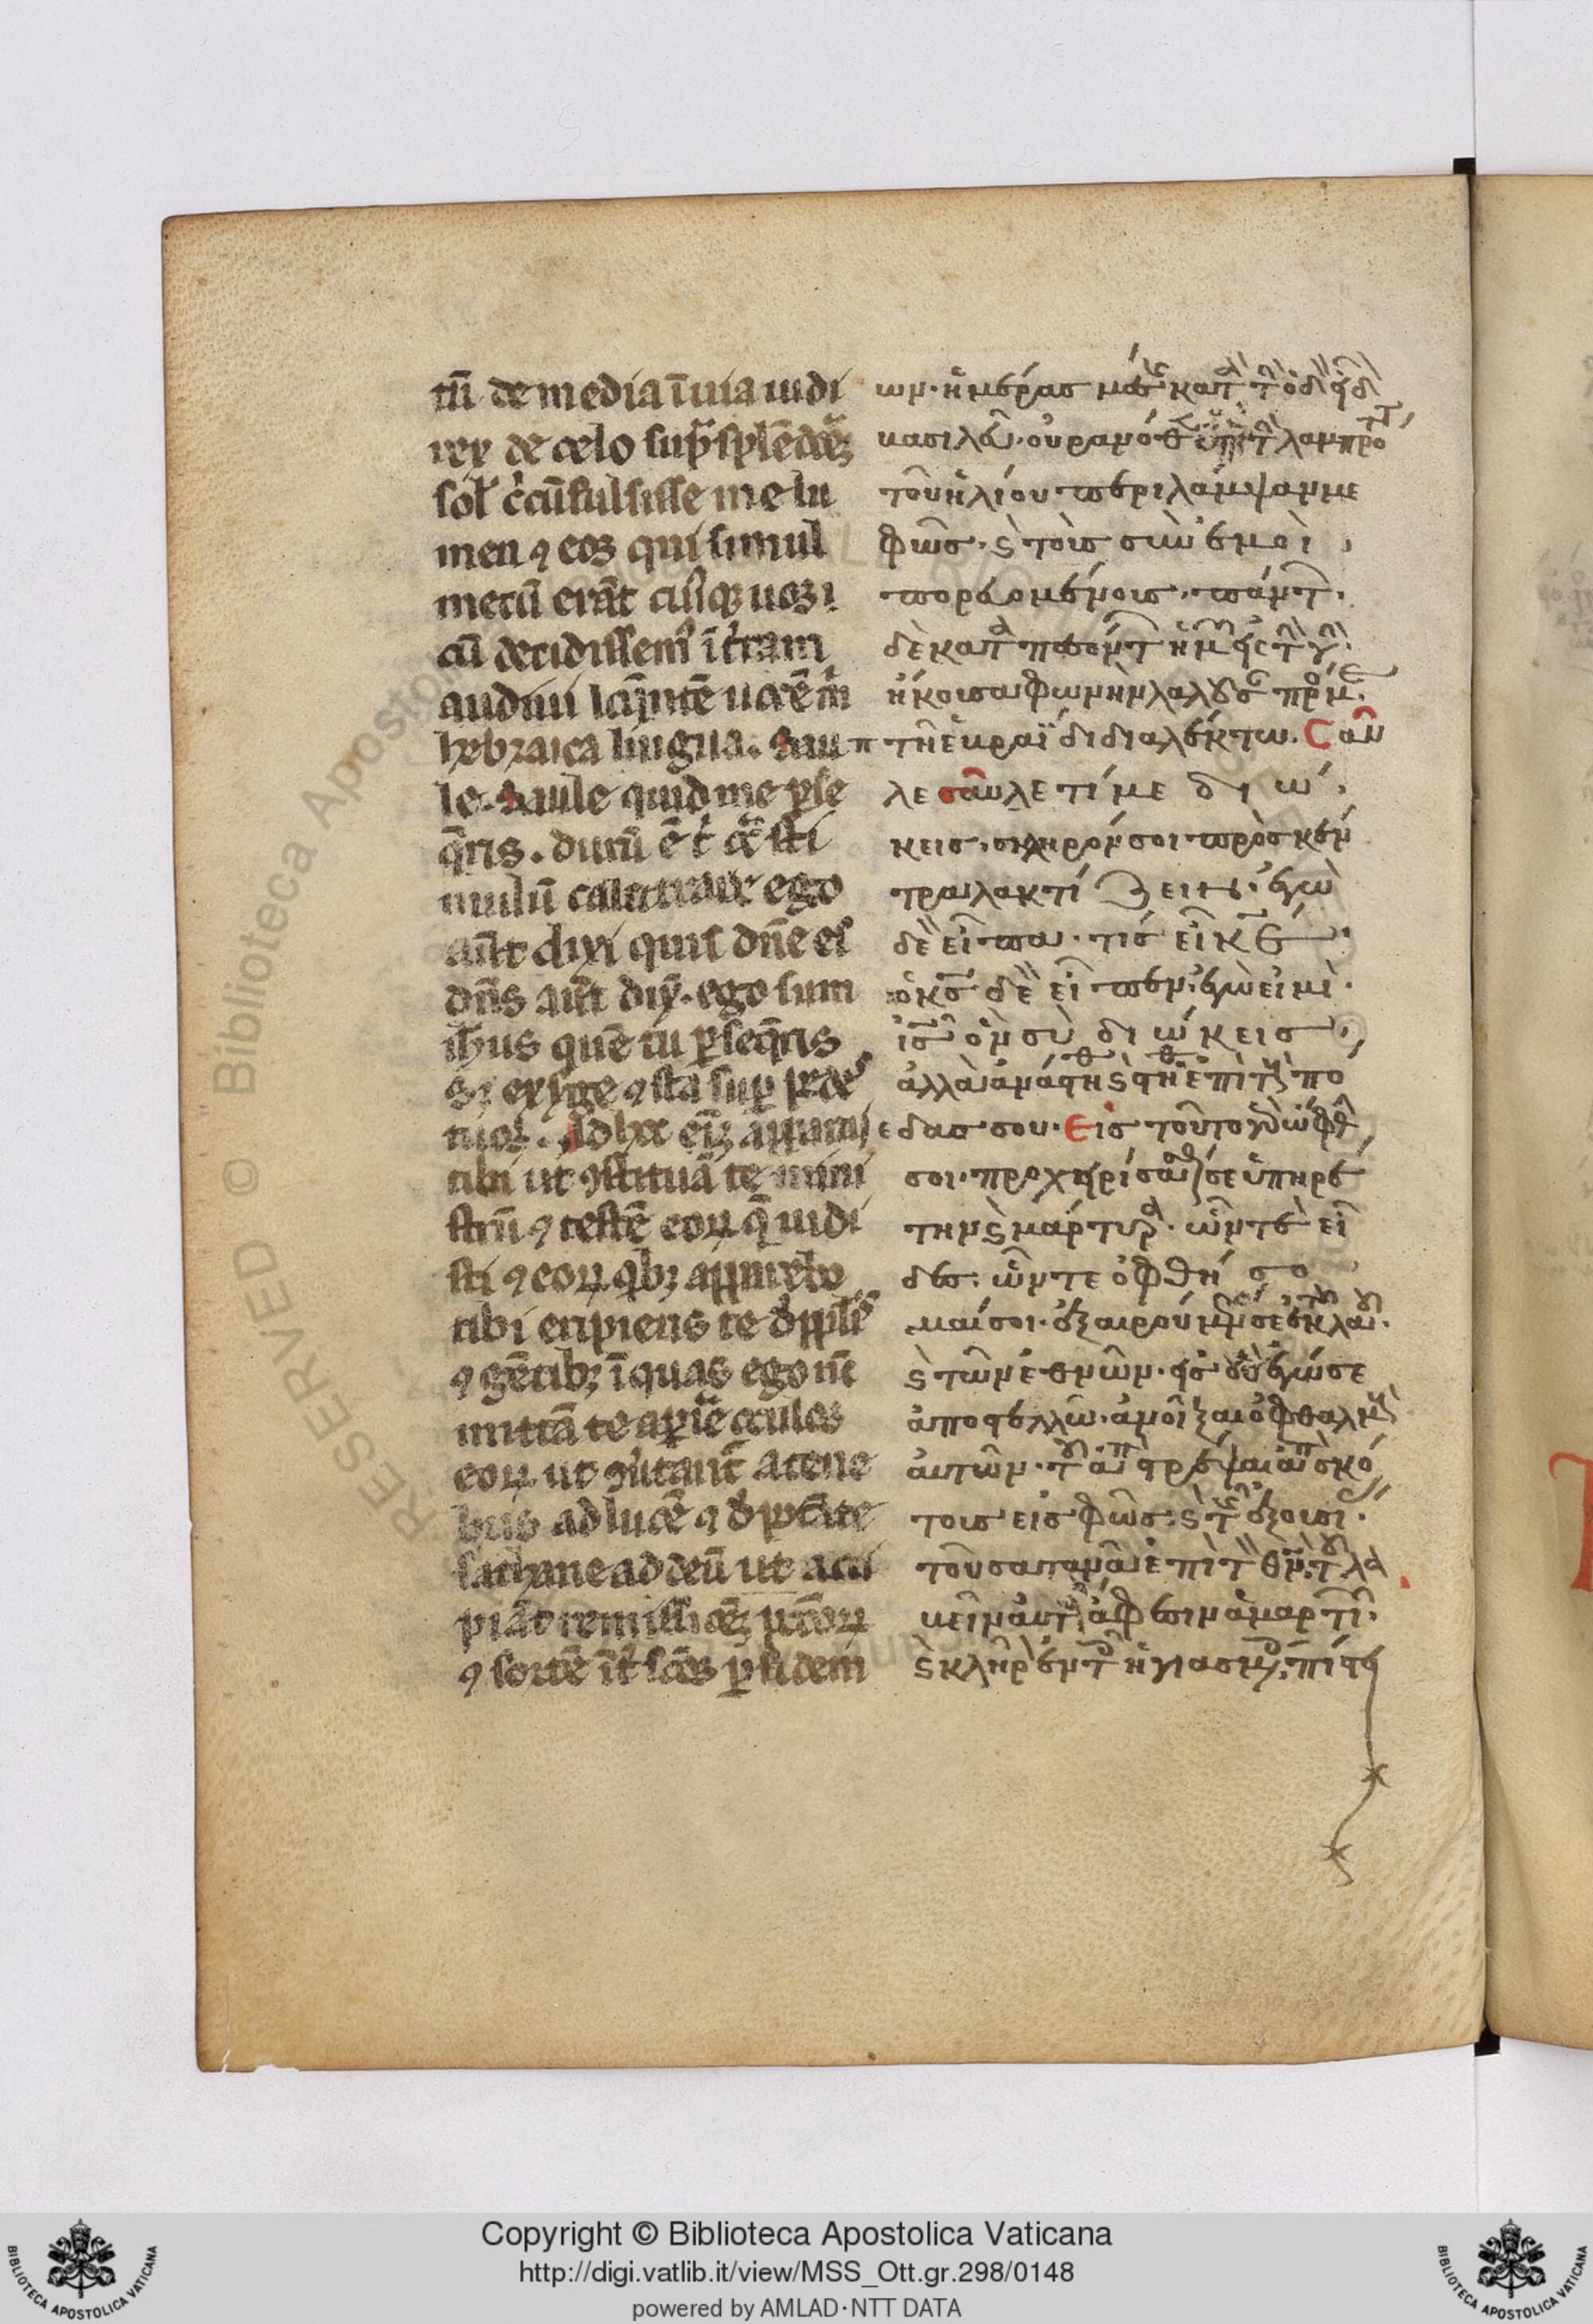 tū de media ī uia uidi
rex de celo sup̄ splēdorē
sol̄ c̄cūfulsisse me lu
men ⁊ eos qui simul
mecū erāt cūq; nos
cū decidissem̄ ī t̄ram
audiui loq̄ntē uocē m̄
hebraica lingua. Sau
le. Saule quid me p̄se
q̄ris. durū ē t̄
mulū calcitrare ego
aūt dixi quis dn̄e es
dn̄s aūt dix̄. ego sum
ihus quē tu p̄seq̄ris
s; exurge ⁊ sta sup̄ pedes
tuos. Ad hoc eī apparui
tibi ut ꝯstituā te mini
strū ⁊ testē eoꝝ q̄ uidi
sti ⁊ eoꝝ qb; apparebo
tibi eripiens te d̄ pp̄lis
⁊ gētib; ī quas ego nc̄
mittā te ap̄ire oculos
eoꝝ ut ꝯūtant̄ a tene
bris ad lucē ⁊ d̄ ptāte
sathane ad deū ut acci
piāt remissiōē; pctōꝝ
⁊ sortē īt̄ scōs p̄ fidem
ων· ἡμέρας μέσης κατὰ τὴν ὁδὸν εἶδον
βασιλεῦ· οὐρανόθεν ὑπὲρ τὴν λαμπρότητα
τοῦ ἡλίου περιλάμψαν με
φῶς· ϗ τοὺς σὺν ἐμοὶ
πορευομένους· πάντων
δὲ καταπεσόντων ἡμῶν εἰς τὴν γῆν
ἤκουσα φωνὴν λαλοῦσαν πρός με
τῆ ἑβραΐδι διαλέκτω. Σαοὺ
λε σαοὺλε τί με διώ
κεις· σκληρόν σοι πρὸς κέν
τρα λακτίζειν· ἐγὼ
δὲ εἶπα· τίς εἶ κε̄·
ὁ κς̄ δὲ εἶπεν· ἐγώ εἰμι
ις̄ ὃν σὺ διώκεις·
ἀλλὰ ἀνάστηθι ϗ στῆθι ἐπὶ τοὺς πό
δας σου· Εἰς τοῦτο γὰρ ὤφθην
σοι· προχειρίσασθαί σε ὑπηρέ
την ϗ μάρτυρα· ὧν τε εἶ
δες· ὧν τε ὀφθήσο
μαί σοι· ἐξαιρούμενός σε ἐκ τοῦ λαοῦ·
ϗ τῶν ἐθνῶν· εἰς οὓς ἐγώ σε
ἀποστέλλω· ἀνοῖξαι ὀφθαλμοὺς
αὐτῶν· τοῦ ἀποστρέψαι ἀπὸ σκό
τους εἰς φῶς· ϗ τῆς ἐξουσίας
τοῦ σατανᾶ ἐπὶ τὸν θν̄· τοῦ λα
βεῖν αὐτοὺς ἄφεσιν ἁμαρτιῶν
ϗ κλῆρον ἐν τοῖς ἡγιασμένοις πίστει
Copyright © Biblioteca Apostolica Vaticana
http://digi.vatlib.it/view/MSS_Ott.gr.298/0148
powered by AMLAD·NTT DATA